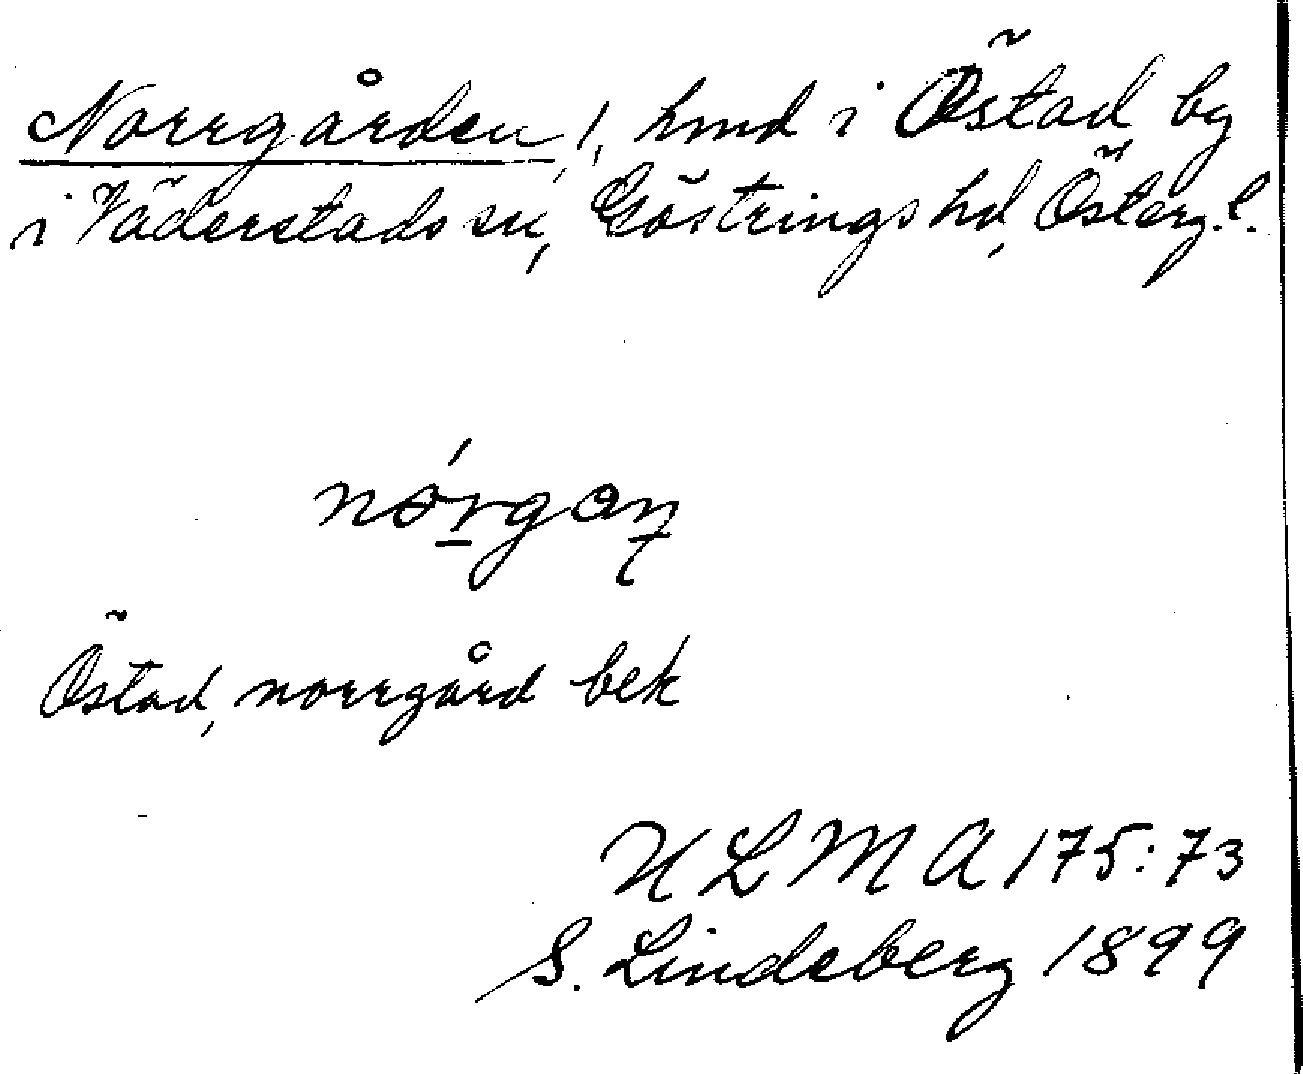 Norrgården, 1, hmd i Östad by
i Väderstads sn, Göstrings hd, Österg. l.
nórgan
Östad, norrgård bek
ULMA 175:73
S. Lindeberg 1899